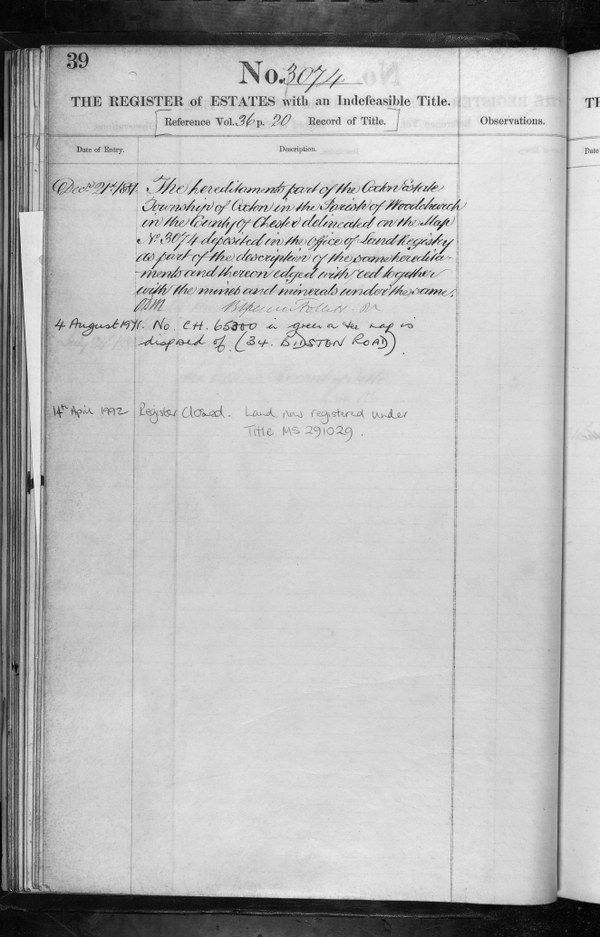 39
No. 3074
THE REGISTER of ESTATES with an Indefeasible Title.
Reference Vol. 36 p. 20 Record of Title.
Observations.
Date of Entry.
Description.
Decr 21st
The hereditaments part of the Oxton Estate
Township of Oxton in the Parish of Woodchurch
in the County of Chester delineated on the Map
No 3074 deposited in the office of Land Registry
as part of the description of the same heredita-
ments and thereon edged with red together
with the mines and minerals under the same.
Follett
4 August 1971. No. CH. 65300 in green on the map is
disposed of. (34. BIDSTON ROAD).
14th April 1992 Register Closed. Land now registered under
Title MS 291029.